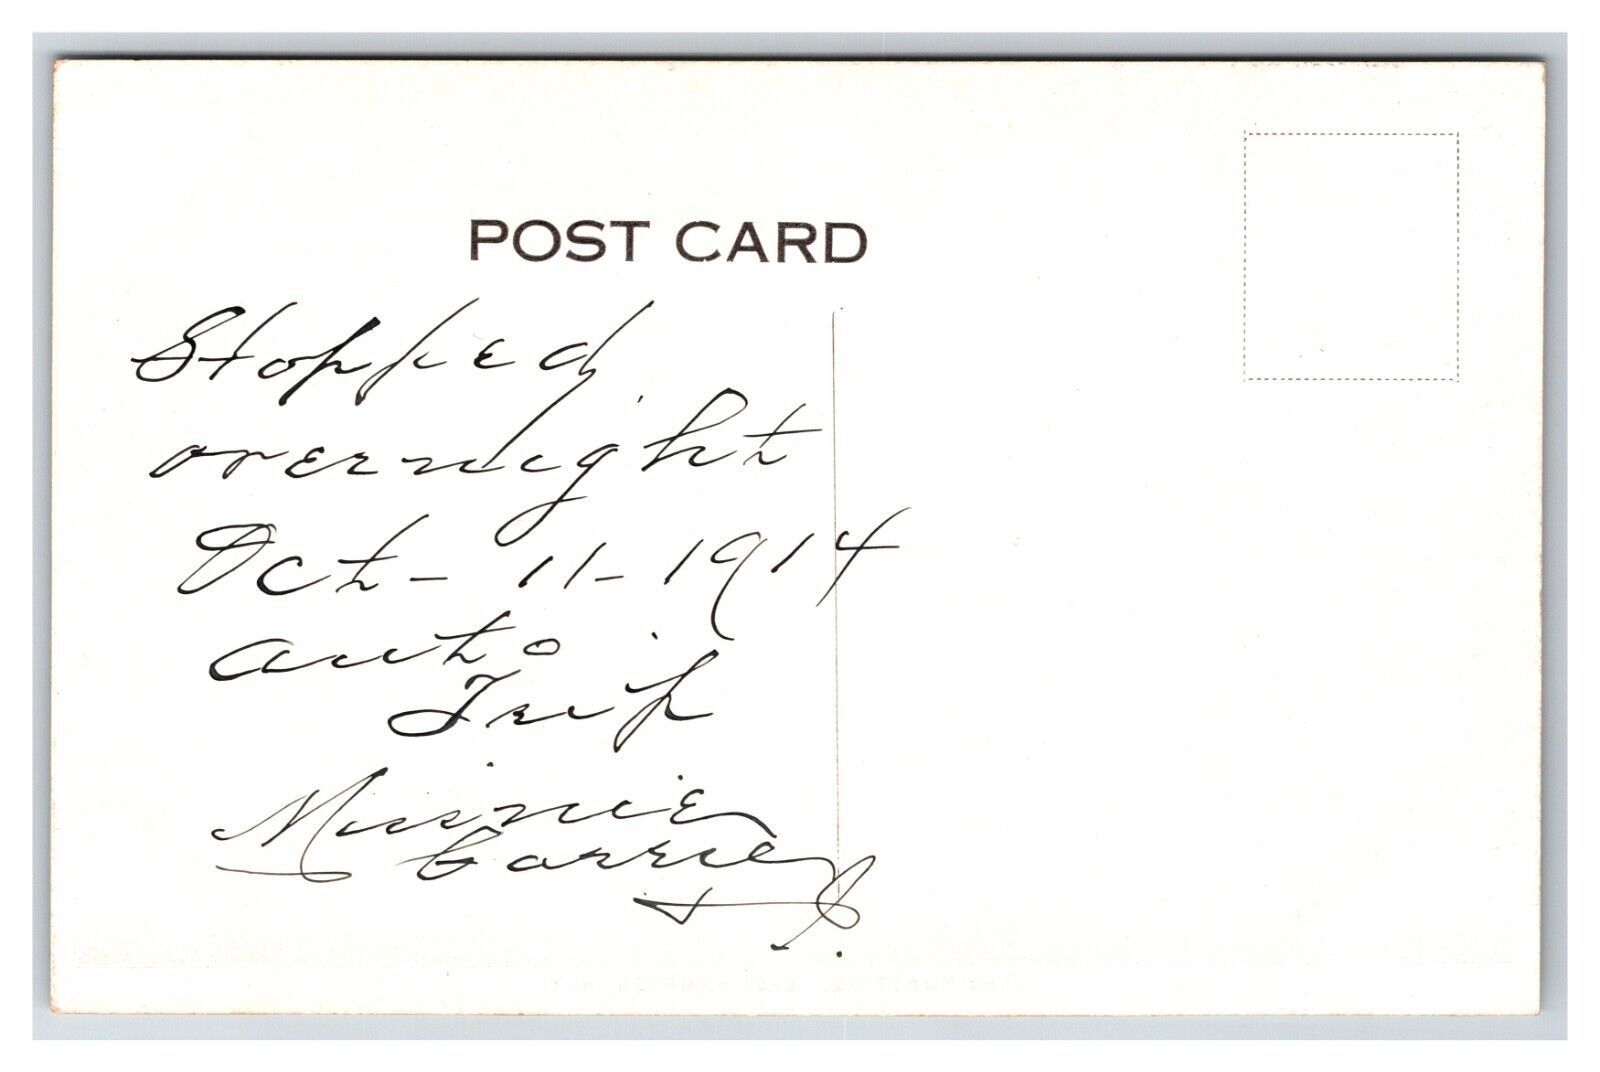 POST CARD
Stopped
overnight
Oct - 11 - 1914
auto
Trip
Minnie